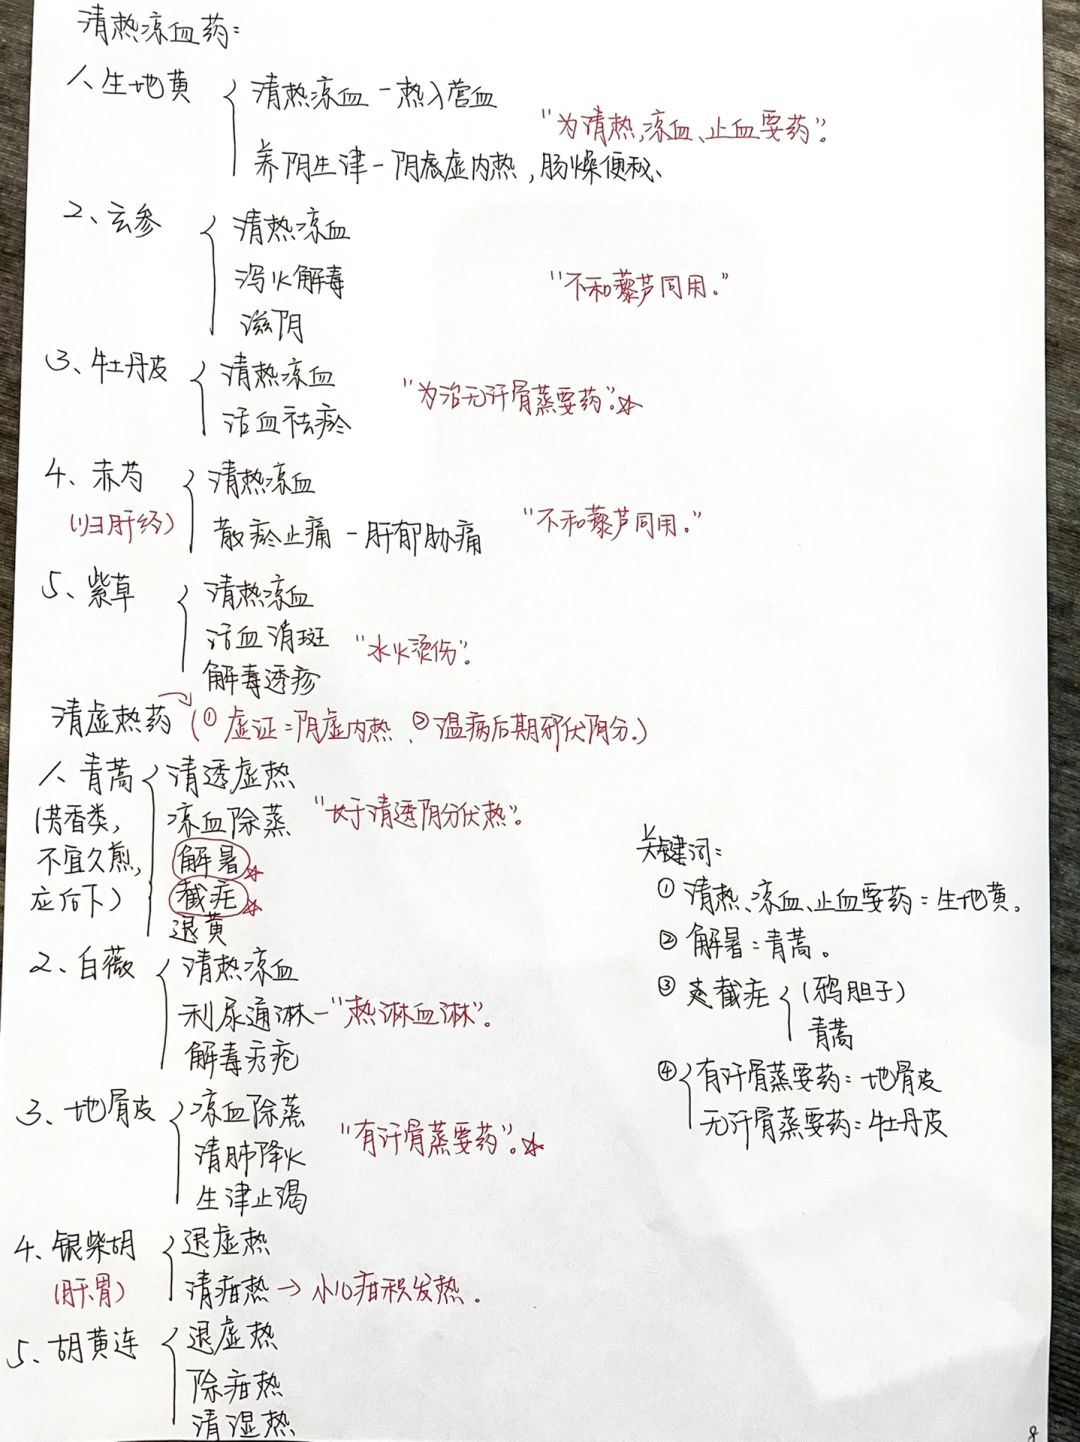 清热凉血药:
1、生地黄
清热凉血－热入营血
"为清热,凉血、止血要药"。
养阴生津－阴虚内热,肠燥便秘、
2、玄参
清热凉血
泻火解毒
"不和藜芦同用。"
滋阴
3、牡丹皮
清热凉血
"为治无汗骨蒸要药"。☆
活血祛瘀
4、赤芍
清热凉血
(归肝经)
散瘀止痛－肝郁胁痛
"不和藜芦同用。"
5、紫草
清热凉血
活血消斑
"水火烫伤"。
解毒透疹
清虚热药
(①虚证=阴虚内热、②温病后期邪伏阴分.)
1、青蒿
清透虚热
(芳香类,
不宜久煎,
应后下)
凉血除蒸
"长于清透阴分伏热"。
解暑☆
截疟☆
退黄
2、白薇
清热凉血
利尿通淋－"热淋血淋"。
解毒疗疮
3、地骨皮
凉血除蒸
"有汗骨蒸要药"。☆
清肺降火
生津止渴
4、银柴胡
(肝.胃)
退虚热
清疳热→小儿疳积发热.
5、胡黄连
退虚热
除疳热
清湿热
关键词:
①清热、凉血、止血要药=生地黄.
②解暑=青蒿。
③截疟
(鸦胆子)
青蒿
④有汗骨蒸要药=地骨皮
无汗骨蒸要药=牡丹皮
8